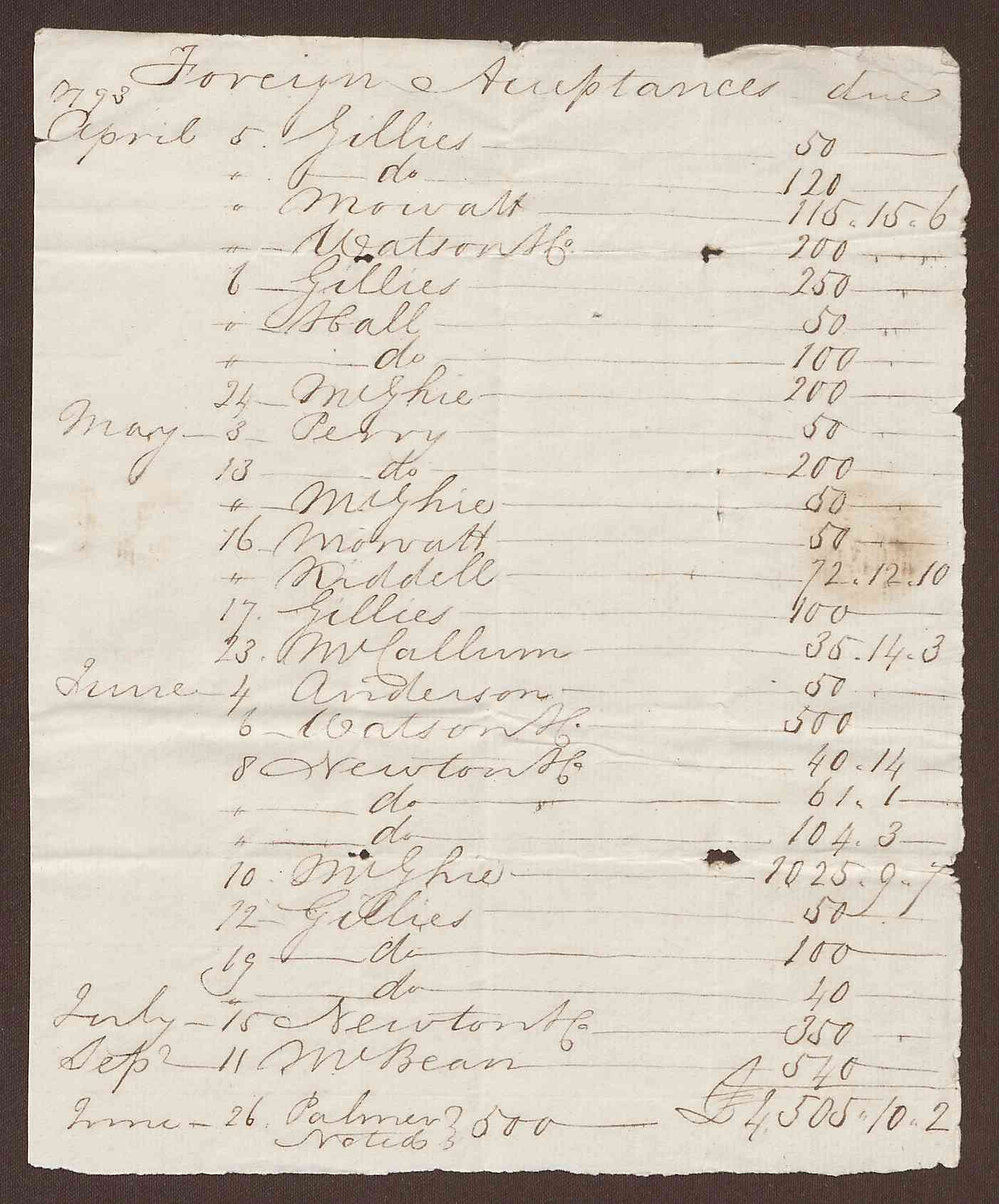 Foreign Acceptances due
1793
April 5. Gillies 50
" do 120
" Mowatt 115.15.6
" Watson & Co. 200
6 Gillies 250
" Hall 50
" do 100
24 McGhie 200
May 3 Perry 50
13 do 200
" McGhie 50
16 Mowatt 50
" Riddell 72.12.10
17. Gillies 100
23. McCallum 35.14.3
June 4 Anderson 50
6 Watson & Co. 500
8 Newton & Co 40.14
" do 61.1
" do 104.3
10 McGhie 1025.9.7
12 Gillies 50
19 do 100
" do 40
July 15 Newton & Co 350
Sepr 11 McBean 540
£4,505.10.2
June 26. Palmer 500
Noted